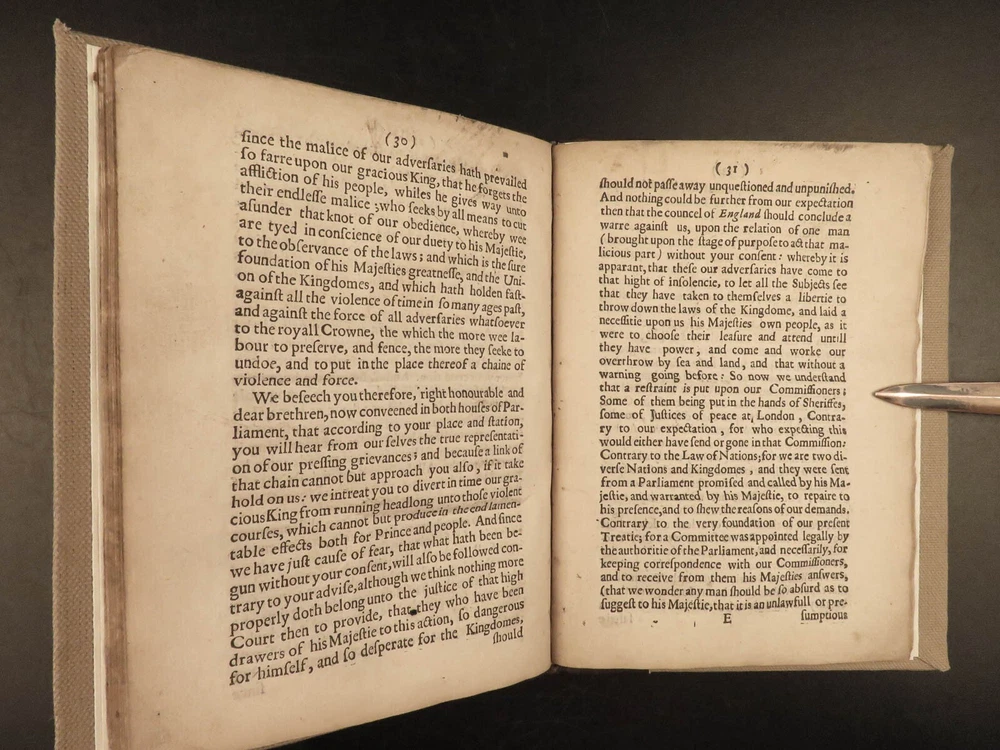 (30)
ſince the malice of our adverſaries hath prevailed
ſo farre upon our gracious King, that he forgets the
affliction of his people, whiles he gives way unto
their endleſſe malice ; who ſeeks by all means to cut
aſunder that knot of our obedience, whereby wee
are tyed in conſcience of our duety to his Majeſtie,
to the obſervance of the laws ; and which is the ſure
foundation of his Majeſties greatneſſe, and the Uni-
on of the Kingdomes, and which hath holden faſt
againſt all the violence of time in ſo many ages paſt,
and againſt the force of all adverſaries whatſoever
to the royall Crowne, the which the more wee la-
bour to preſerve, and fence, the more they ſeeke to
undoe, and to put in the place thereof a chaine of
violence and force.
We beſeech you therefore, right honourable and
dear brethren, now conveened in both houſes of Par-
liament, that according to your place and ſtation,
you will hear from our ſelves the true repreſentati-
on of our preſſing grievances ; and becauſe a link of
that chain cannot but approach you alſo, if it take
hold on us : we intreat you to divert in time our gra-
cious King from running headlong unto thoſe violent
courſes, which cannot but produce in the end lamen-
table effects both for Prince and people. And ſince
we have juſt cauſe of fear, that what hath been be-
gun without your conſent, will alſo be followed con-
trary to your adviſe, although we think nothing more
properly doth belong unto the juſtice of that high
Court then to provide, that they who have been
drawers of his Majeſtie to this action, ſo dangerous
for himſelf, and ſo deſperate for the Kingdomes,
ſhould
(31)
ſhould not paſſe away unqueſtioned and unpuniſhed.
And nothing could be further from our expectation
then that the councel of England ſhould conclude a
warre againſt us, upon the relation of one man
(brought upon the ſtage of purpoſe to act that ma-
licious part) without your conſent : whereby it is
apparant, that theſe our adverſaries have come to
that hight of inſolencie, to let all the Subjects ſee
that they have taken to themſelves a libertie to
throw down the laws of the Kingdome, and laid a
neceſſitie upon us his Majeſties own people, as it
were to chooſe their leaſure and attend untill
they have power, and come and worke our
overthrow by ſea and land, and that without a
warning going before : So now we underſtand
that a reſtraint is put upon our Commiſſioners ;
Some of them being put in the hands of Sheriffes,
ſome of Juſtices of peace at London , Contra-
ry to our expectation, for who expecting this
would either have ſend or gone in that Commiſſion:
Contrary to the Law of Nations; for we are two di-
verſe Nations and Kingdomes , and they were ſent
from a Parliament promiſed and called by his Ma-
jeſtie, and warranted by his Majeſtie, to repaire to
his preſence, and to ſhew the reaſons of our demands.
Contrary to the very foundation of our preſent
Treatie; for a Committee was appointed legally by
the authoritie of the Parliament, and neceſſarily, for
keeping correſpondence with our Commiſſioners,
and to receive from them his Majeſties anſwers,
(that we wonder any man ſhould be ſo abſurd as to
ſuggeſt to his Majeſtie, that it is an unlawfull or pre-
E ſumptious